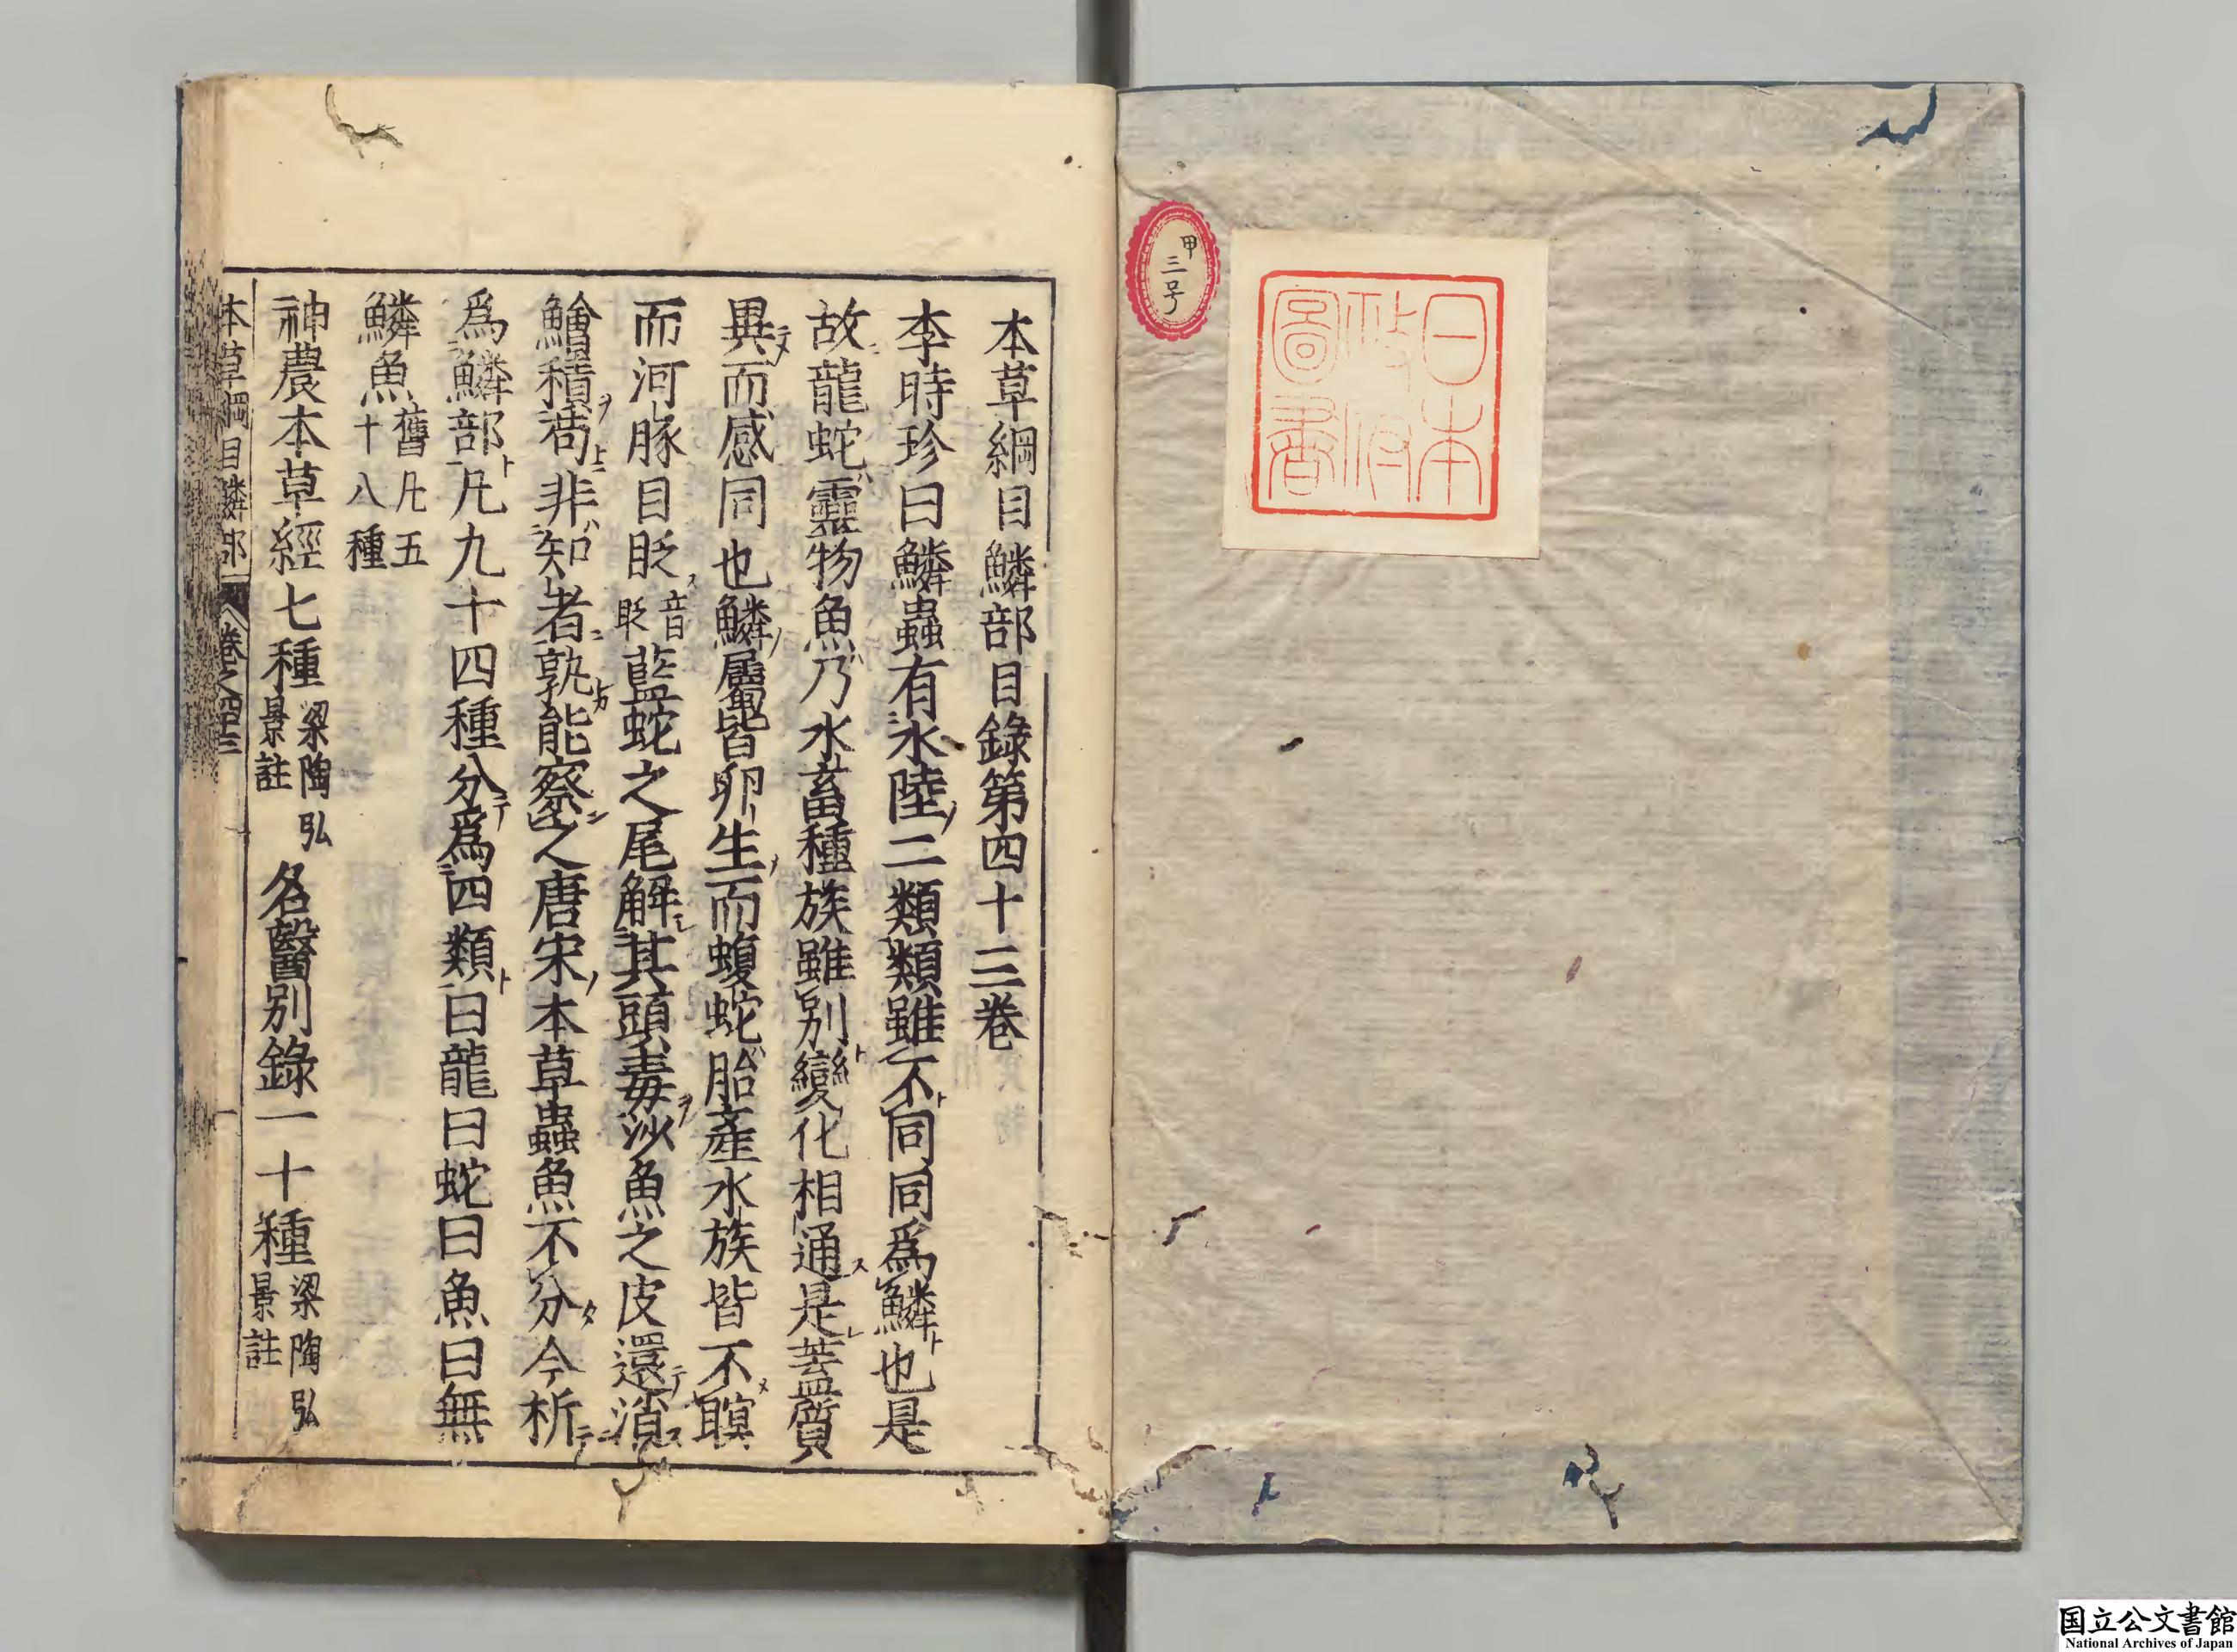 甲
三
号
日本
政府
圖書
本草綱目鱗部目錄第四十三卷
李時珍曰鱗蟲有水陸二類類雖不同同爲鱗也是
故龍蛇靈物魚乃水畜種族雖別變化相通是蓋質
異而感同也鱗屬皆卵生而蝮蛇胎產水族皆不瞑
而河豚目眨音眨藍蛇之尾解其頭毒沙魚之皮還消
鱠積苟非知者孰能察之唐宋本草蟲魚不分今析
爲鱗部凡九十四種分爲四類曰龍曰蛇曰魚曰無
鱗魚舊凡五十八種
神農本草經七種梁陶弘景註 名醫別錄一十種梁陶弘景註
本草綱目鱗部 卷之四十三
国立公文書館
National Archives of Japan